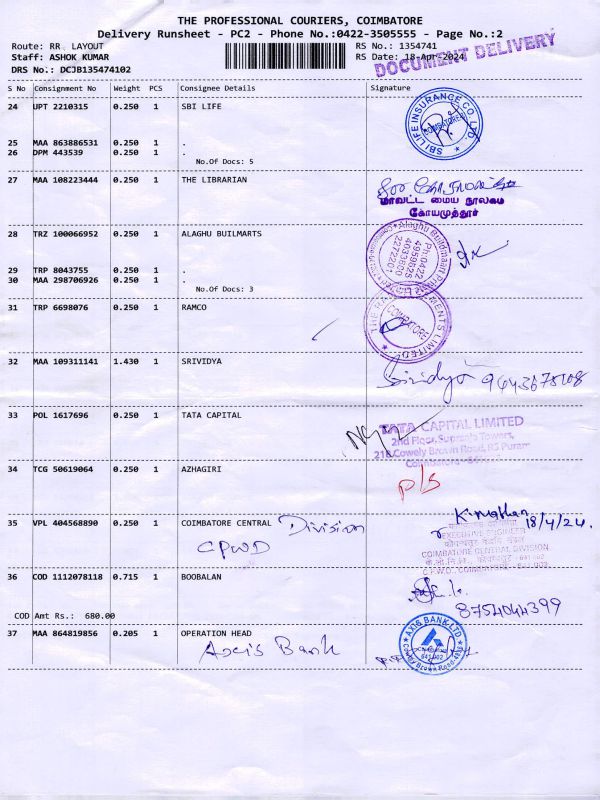 THE PROFESSIONAL COURIERS, COIMBATORE
Delivery Runsheet - PC2 - Phone No.:0422-3505555 - Page No.:2
Route: RR LAYOUT
RS No.: 1354741
Staff: ASHOK KUMAR
RS Date: 18-Apr-2024
DOCUMENT DELIVERY
DRS No.: DCJB135474102
S No Consignment No Weight PCS Consignee Details Signature
24 UPT 2210315 0.250 1 SBI LIFE
SBI LIFE INSURANCE CO. LTD.
COIMBATORE
25 MAA 863886531 0.250 1 .
26 DPM 443539 0.250 1 .
No.Of Docs: 5
27 MAA 108223444 0.250 1 THE LIBRARIAN
மாவட்ட மைய நூலகம்
கோயமுத்தூர்
28 TRZ 100066952 0.250 1 ALAGHU BUILMARTS
Ph:0422
4959625
4033800
2272201
29 TRP 8043755 0.250 1 .
30 MAA 298706926 0.250 1 .
No.Of Docs: 3
31 TRP 6698076 0.250 1 RAMCO
COIMBATORE
32 MAA 109311141 1.430 1 SRIVIDYA
Srividya
33 POL 1617696 0.250 1 TATA CAPITAL
TATA CAPITAL LIMITED
2nd Floor, Supraja Towers,
218, Cowely Brown Road, RS Puram
Coimbatore
34 TCG 50619064 0.250 1 AZHAGIRI
P/S
35 VPL 404568890 0.250 1 COIMBATORE CENTRAL Division
CPWD
18/4/24.
EXECUTIVE ENGINEER
COIMBATORE CENTRAL DIVISION
36 COD 1112078118 0.715 1 BOOBALAN
8754044399
COD Amt Rs.: 680.00
37 MAA 864819856 0.205 1 OPERATION HEAD
Axis Bank
AXIS BANK LTD
641 002